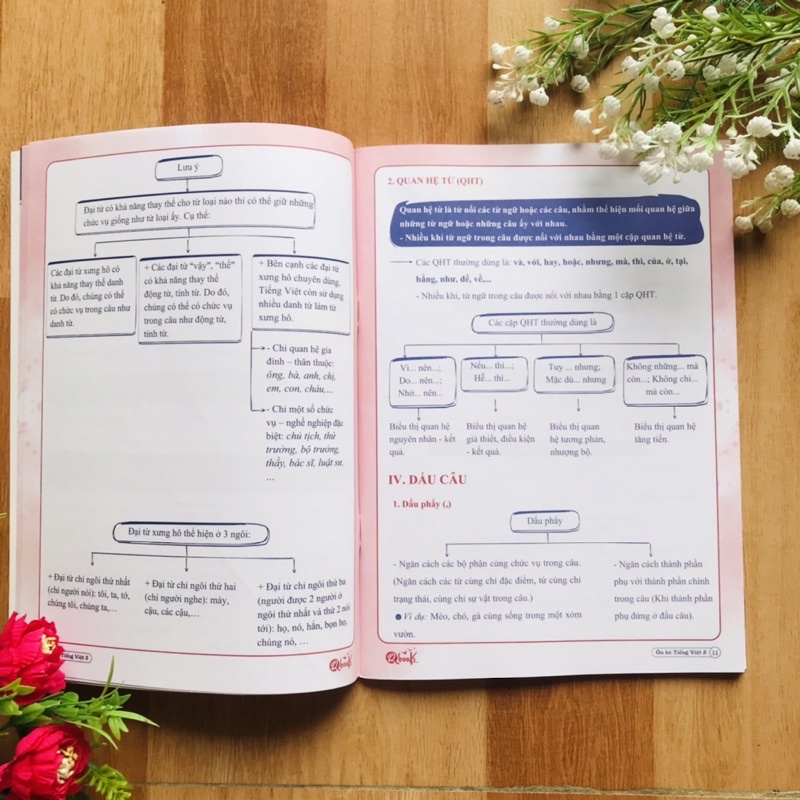 Lưu ý
Đại từ có khả năng thay thế cho từ loại nào thì có thể giữ những
chức vụ giống như từ loại ấy. Cụ thể:
Các đại từ xưng hô có
khả năng thay thế danh
từ. Do đó, chúng có thể
có chức vụ trong câu như
danh từ.
+ Các đại từ “vậy”, “thế”
có khả năng thay thế
động từ, tính từ. Do đó,
chúng có thể có chức vụ
trong câu như động từ,
tính từ.
+ Bên cạnh các đại từ
xưng hô chuyên dùng,
Tiếng Việt còn sử dụng
nhiều danh từ làm từ
xưng hô.
- Chỉ quan hệ gia
đình – thân thuộc:
ông, bà, anh, chị,
em, con, cháu,...
- Chỉ một số chức
vụ – nghề nghiệp đặc
biệt: chủ tịch, thứ
trưởng, bộ trưởng,
thầy, bác sĩ, luật sư.
...
Đại từ xưng hô thể hiện ở 3 ngôi:
+ Đại từ chỉ ngôi thứ nhất
(chỉ người nói): tôi, ta, tớ,
chúng tôi, chúng ta,…
+ Đại từ chỉ ngôi thứ hai
(chỉ người nghe): mày,
cậu, các cậu,…
+ Đại từ chỉ ngôi thứ ba
(người được 2 người ở
ngôi thứ nhất và thứ 2 nói
tới): họ, nó, hắn, bọn họ,
chúng nó, …
Tiếng Việt 5
book
2. QUAN HỆ TỪ (QHT)
Quan hệ từ là từ nối các từ ngữ hoặc các câu, nhằm thể hiện mối quan hệ giữa
những từ ngữ hoặc những câu ấy với nhau.
- Nhiều khi từ ngữ trong câu được nối với nhau bằng một cặp quan hệ từ.
Các QHT thường dùng là: và, với, hay, hoặc, nhưng, mà, thì, của, ở, tại,
bằng, như, để, về,...
- Nhiều khi, từ ngữ trong câu được nối với nhau bằng 1 cặp QHT.
Các cặp QHT thường dùng là
Vì... nên...;
Do... nên...;
Nhờ... nên...
Nếu... thì...;
Hễ... thì...
Tuy ... nhưng;
Mặc dù... nhưng
Không những... mà
còn...; Không chỉ...
mà còn...
Biểu thị quan hệ
nguyên nhân - kết
quả.
Biểu thị quan hệ
giả thiết, điều kiện
- kết quả.
Biểu thị quan
hệ tương phản,
nhượng bộ.
Biểu thị quan hệ
tăng tiến.
IV. DẤU CÂU
1. Dấu phẩy (,)
Dấu phẩy
- Ngăn cách các bộ phận cùng chức vụ trong câu.
(Ngăn cách các từ cùng chỉ đặc điểm, từ cùng chỉ
trạng thái, cùng chỉ sự vật trong câu.)
● Ví dụ: Mèo, chó, gà cùng sống trong một xóm
vườn.
- Ngăn cách thành phần
phụ với thành phần chính
trong câu (Khi thành phần
phụ đứng ở đầu câu).
book
Ôn hè Tiếng Việt 5 11